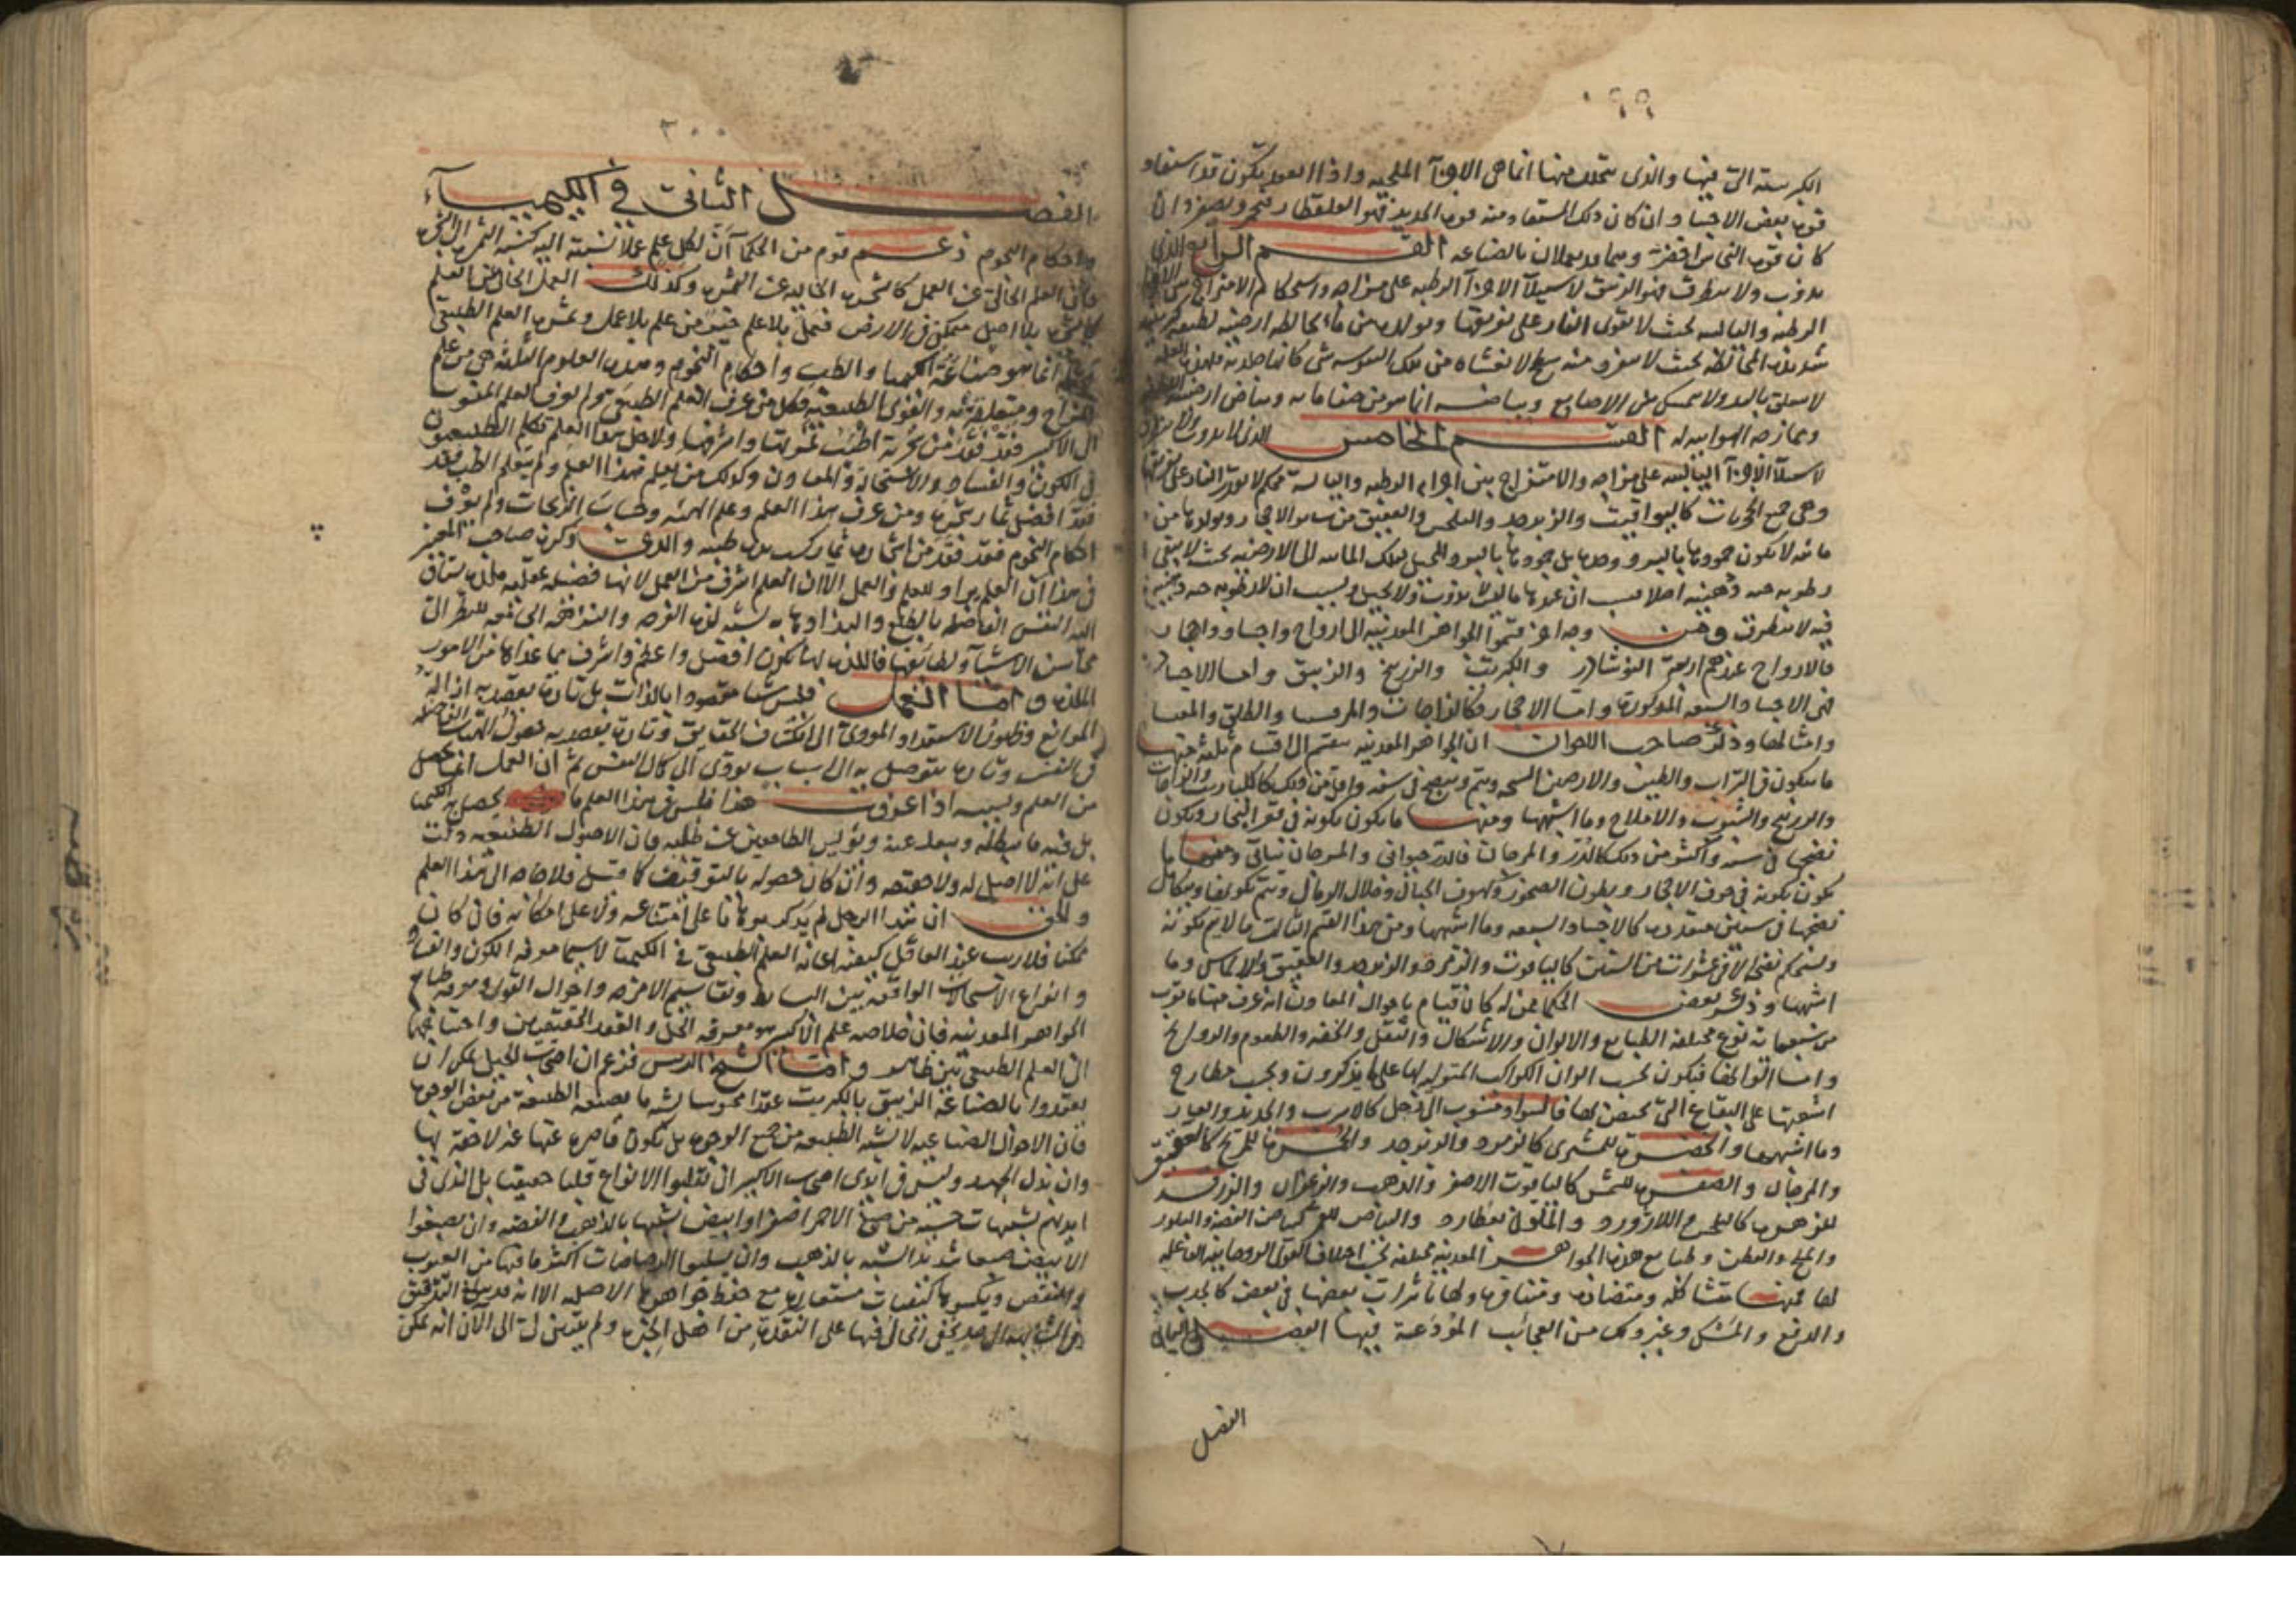 ١٩٩
الكبريتية التي فيها والذي يتحلل منها انما هي الاجزآ الملحيه واذا انعقد يكون قد استفاد
قوة بعض الاجساد وان كان ذلك المستفاد منه قوة الحديد فهو القلقطار فيحمر ويصفر وان
كان قوة النحاس اخضر ويعملان بالصناعه القسم الرابع الذي
يذوب ولا ينطرق فهو الزئبق لاستيلآ الاجزآ الرطبه على مزاجه واستحكام الامتزاج بين
الرطبه واليابسه بحيث لا تقوى النار على تفريقها وتولده من مآء خالطه ارضيه لطيفه كبريتيه
شديدة المخالطه بحيث لا منه سطح الا تغشاه من تلك اليبوسه شى
لا يعلق باليد ولا يتمسك بين الاصابع وبياضه انما هو من صفا مايه وبياض ارضيته
وممازجه الهوائيه له القسم الخامس الذى لا يذوب ولا
لاستيلآ الاجزآ اليابسه على مزاجه والامتزاج بين اجزايه الرطبه واليابسة محكم لا تقدر النار على
وهى جميع الحجريات كاليواقيت والزبرجد والبلخش والعقيق من ساير الاحجار وتولدها من
مائيه لا يكون جمودها بالبرد وحده بل جمودها باليبس المحيل لتلك المائيه الى الارضيه بحيث لا يبقى
رطوبه حيه دهنيه اصلا
فيه لا ينطرق ومن وجه اخر قسموا الجواهر المعدنيه الى ارواح واجساد واحجار
فالارواح عندهم اربعة النوشادر والكبريت والزرنيخ والزيبق واما الاجساد
فهى الاجساد السبعه المذكوره واما الاحجار فكالزاجات والمرقشيا والطلق والمغنيسيا
وامثالها وذكر صاحب الاخوان ان الجواهر المعدنيه ينقسم الى اقسام ثلثه منها
ما يتكون فى التراب والطين والارضين السبخه ويتم نضجه فى سنه واقل من ذلك كالكباريت والزاجات
والزرنيخ والشبوب والاملاح وما اشبهها ومنها ما يكون تكونه فى قعر البحار ويكون
نضجها فى سنه واكثر من ذلك كالدر والمرجان فالدر حيوانى والمرجان نباتى ومنها ما
يكون تكونه فى جوف الاحجار وبطون الصخور وكهوف الجبال وخلال الرمال ويتم تكونها ويكامل
نضجها فى سنين متعدده كالاجساد السبعه وما اشبهها ومن هذا القسم الثالث ما لا يتم تكونه
ويستحكم نضجه الا فى عشرات من السنين كالياقوت والزمرد والزبرجد والعقيق والالماس وما
اشبهها وذكر بعض الحكما ممن له كان قيام باحوال المعادن انه عرف منها ما يقرب
من سبعمائة نوع مختلفه الطبايع والالوان والاشكال والثقل والخفه والطعوم والروايح
واما الوانها فيكون بحسب الوان الكواكب المتوليه لها على ما يذكرون وبحسب مطارح
اشعتها على البقاع التى تختص لها فالسواد منسوب الى زحل كالاسرب والحديد والقار
وما اشبهها والخضره للمشترى كالزمرد والزبرجد والحمره للمريخ كالعقيق
والمرجان والصفره للشمس كالياقوت الاصفر والذهب والزعفران والزرقه
للزهره كاللازورد والملون لعطارد والبياض للقمر كبياض الفضه والبلور
والملح والقطن وطبايع هذه الجواهر المعدنيه مختلفه بحسب اختلاف القوى الروحانيه الفاعله
لها فمنها متشاكله ومتضاده ومتنافره ولها تأثيرات بعضها فى بعض كالجذب
والدفع والمسك وغير ذلك من العجائب المودعة فيها الفصل الثانى
الفصل
٢٠٠
الفصل الثانى فى الكيميآء
واحكام النجوم زعم قوم من الحكمآ ان لكل علم عملا نسبته اليه كنسبه الثمره الى الشجره
فان العلم الخالى عن العمل كالشجره الخاليه عن الثمره وكذلك العمل الخالى عن العلم
كالثمره بلا اصل ممكن فى الارض فعمل بلا علم خير من علم بلا عمل وثمره العلم الطبيعى
انما هو صناعة الكيميا والطب واحكام النجوم وهذه العلوم الثلثة هى من علم
المزاج ومتعلقاته والقوى الطبيعيه فكل من عرف العلم الطبيعى ثم لم يعرف العلم المنسوب
الى الاكسير فقد فقد من شجرته اطيب ثمرتها واشرفها ولاجل هذا العلم تكلم الطبيعيون
فى الكون والفساد والاستحالة والمعادن وكذلك من تعلم هذا العلم ولم يتعلم الطب فقد
فقد افضل ثمار شجرته ومن عرف هذا العلم وعلم الهيئه وحساب الزيجات ولم يعرف
احكام النجوم فقد فقد من اشجاره ثمار كثيره طيبه والذى ذكره صاحب المعتبر
فى هذا ان العلم يراد للعلم والعمل الا ان العلم اشرف من العمل لانها فضيله عقليه ملذه يشتاق
اليه النفس الفاضله بالطبع
محاسن الاشيآ ولطائفها فاللذه لها تكون افضل واعظم واشرف مما عداها من الامور
الملذه واما العمل فليس شيا مقصودا بالذات بل تارة يقصد به ازالة
الموانع وظهور الاستعداد المودى الى انكشاف الحقايق وتاره يقصد به حصول الهيات الفاضله
فى النفس وتاره يتوصل به الى اسباب تودى الى كمال النفس ثم ان العمل انما يحصل
من العلم وبسببه اذا عرفت هذا فليس فى هذا العلم ما يحصل به الكيميا
بل فيه ما يبطله ويبعد عنه ويؤيس الطامعين عن طلبه فان الاصول الطبيعيه دلت
على انه لا اصل له ولا حقيقه وان كان حصوله بالتوقيف كما قيل فلا حاجه الى هذا العلم
والحق ان هذا الرجل لم يذكر برهانا على امتناعه ولا على امكانه فان كان
ممكنا فلا ريب عند العاقل كيفيه اعانه العلم الطبيعى فى الكيميآ لا سيما معرفه الكون والفساد
وانواع الاستحالات الواقعه بين البسايط وتقاسيم الامزجه واحوال القوى ومعرفه طبايع
الجواهر المعدنيه فان خلاصه علم الاكسير هو معرفه الحل والعقد الحقيقيين واحتياجها
الى العلم الطبيعى بين ظاهر واما الشيخ الرئيس فزعم ان اصحاب الحيل يمكن ان
يعقدوا بالصناعه الزيبق بالكبريت عقدا محسوسا يشبه ما يصنعه الطبيعه من بعض الوجوه
فان الاحوال الصناعيه لا يشبه الطبيعه من جميع الوجوه بل يكون قاصره عنها غير لاحقه بها
وان بذل الجهد وليس فى ايدى اصحاب الاكسير ان يقلبوا الانواع قلبا حقيقيا بل الذى فى
ايديهم تشبيهات حسيه من صبغ الاحمر اصفر او ابيض يشبهها بالذهب والفضه وان يصبغوا
الابيض صبغا شديد الشبه بالذهب وان يسلبوا الرصاصات اكثر ما فيها من العيوب
والنقص ويكسوها كيفيات مستعاره مع حفظ جواهرها الاصليه الا انه التدقيق
فى الشبه الى حد يخفى الحال فيها على النقده من اهل الخبره ولم يتبين لى الى الآن انه يمكن